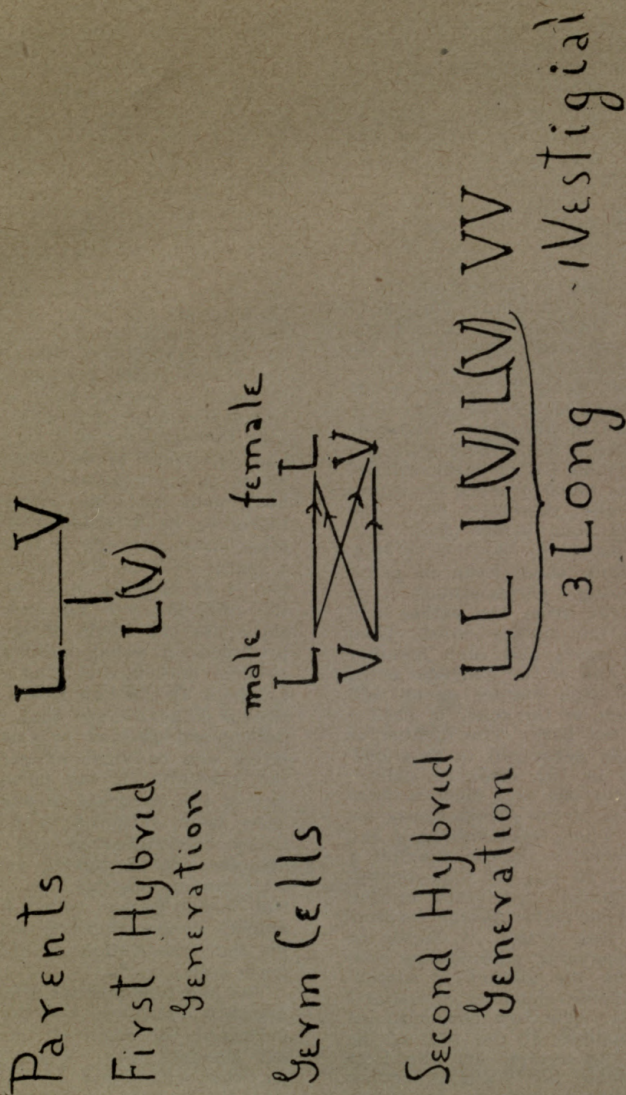 Parents L V
First Hybrid L(V)
Generation
male female
Germ Cells L L
V V
Second Hybrid LL L(V) L(V) VV
Generation
3 Long 1 Vestigial